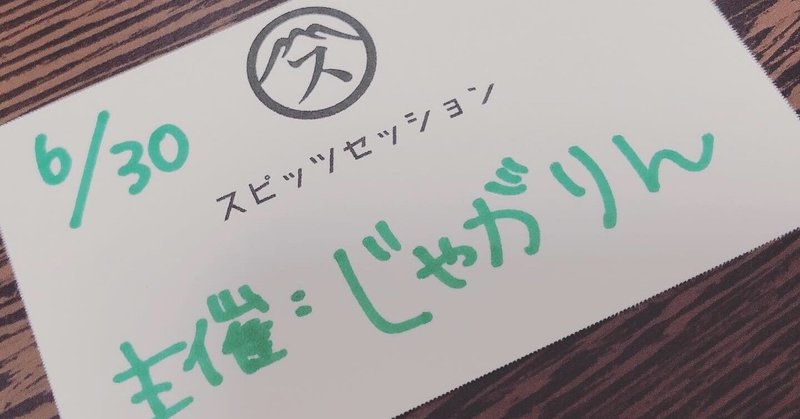 ス
スピッツセッション
6/30
主催:じゃがりん